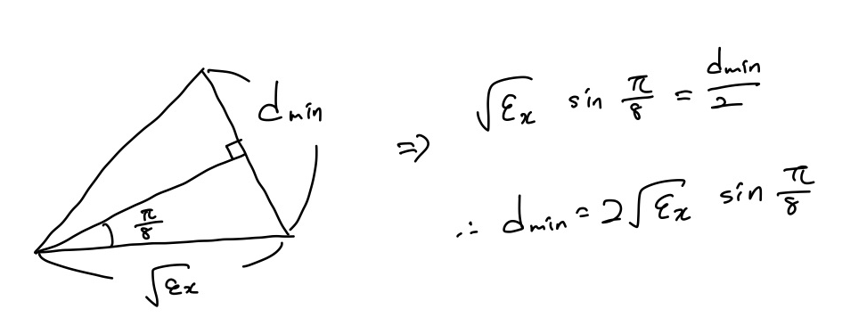 dmin
π/8
√εx
⇒ √εx sin π/8 = dmin/2
∴ dmin = 2√εx sin π/8